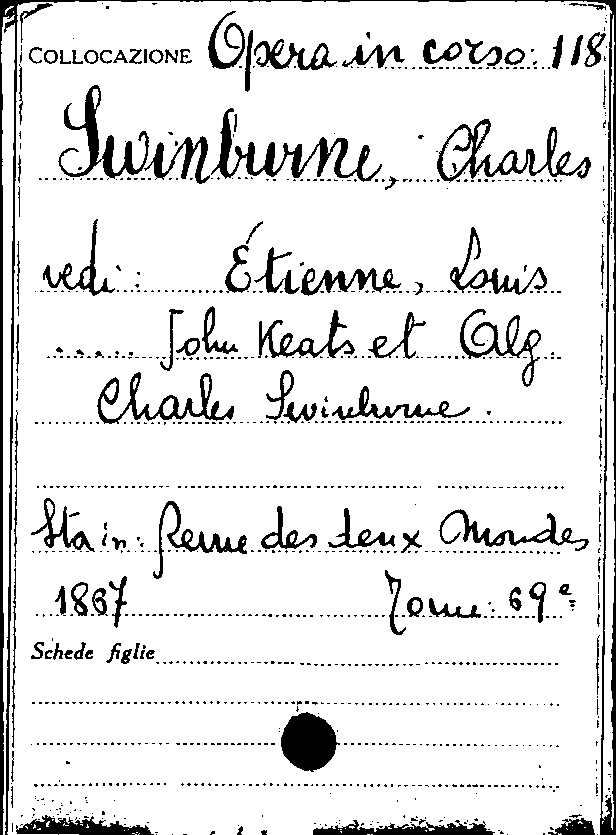 COLLOCAZIONE Opera in corso: 118
Swinburne, Charles
vedi: Étienne, Louis
..... John Keats et Alg.
Charles Swinburne.
Sta in: Revue des deux Mondes
1867 Tome: 69e
Schede figlie